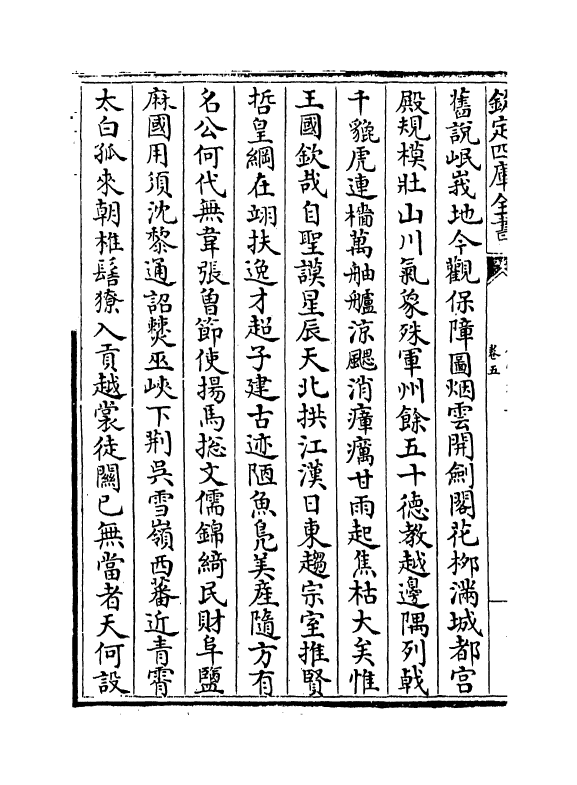 欽定四庫全書
卷五
舊說岷峩地今觀保障圖烟雲開劍閣花栁滿城都宫
殿規模壯山川氣象殊軍州餘五十德教越邊隅列戟
千貔虎連檣萬舳艫涼颸消瘴癘甘雨起焦枯大矣惟
王國欽哉自聖謨星辰天北拱江漢日東趨宗室推賢
哲皇綱在翊扶逸才超子建古迹陋魚鳬美產隨方有
名公何代無韋張曾節使揚馬揔文儒錦綺民財阜鹽
麻國用須沈黎通詔僰巫峽下荆吳雪嶺西蕃近青霄
太白孤來朝椎髻獠入貢越裳徒闗已無當者天何設